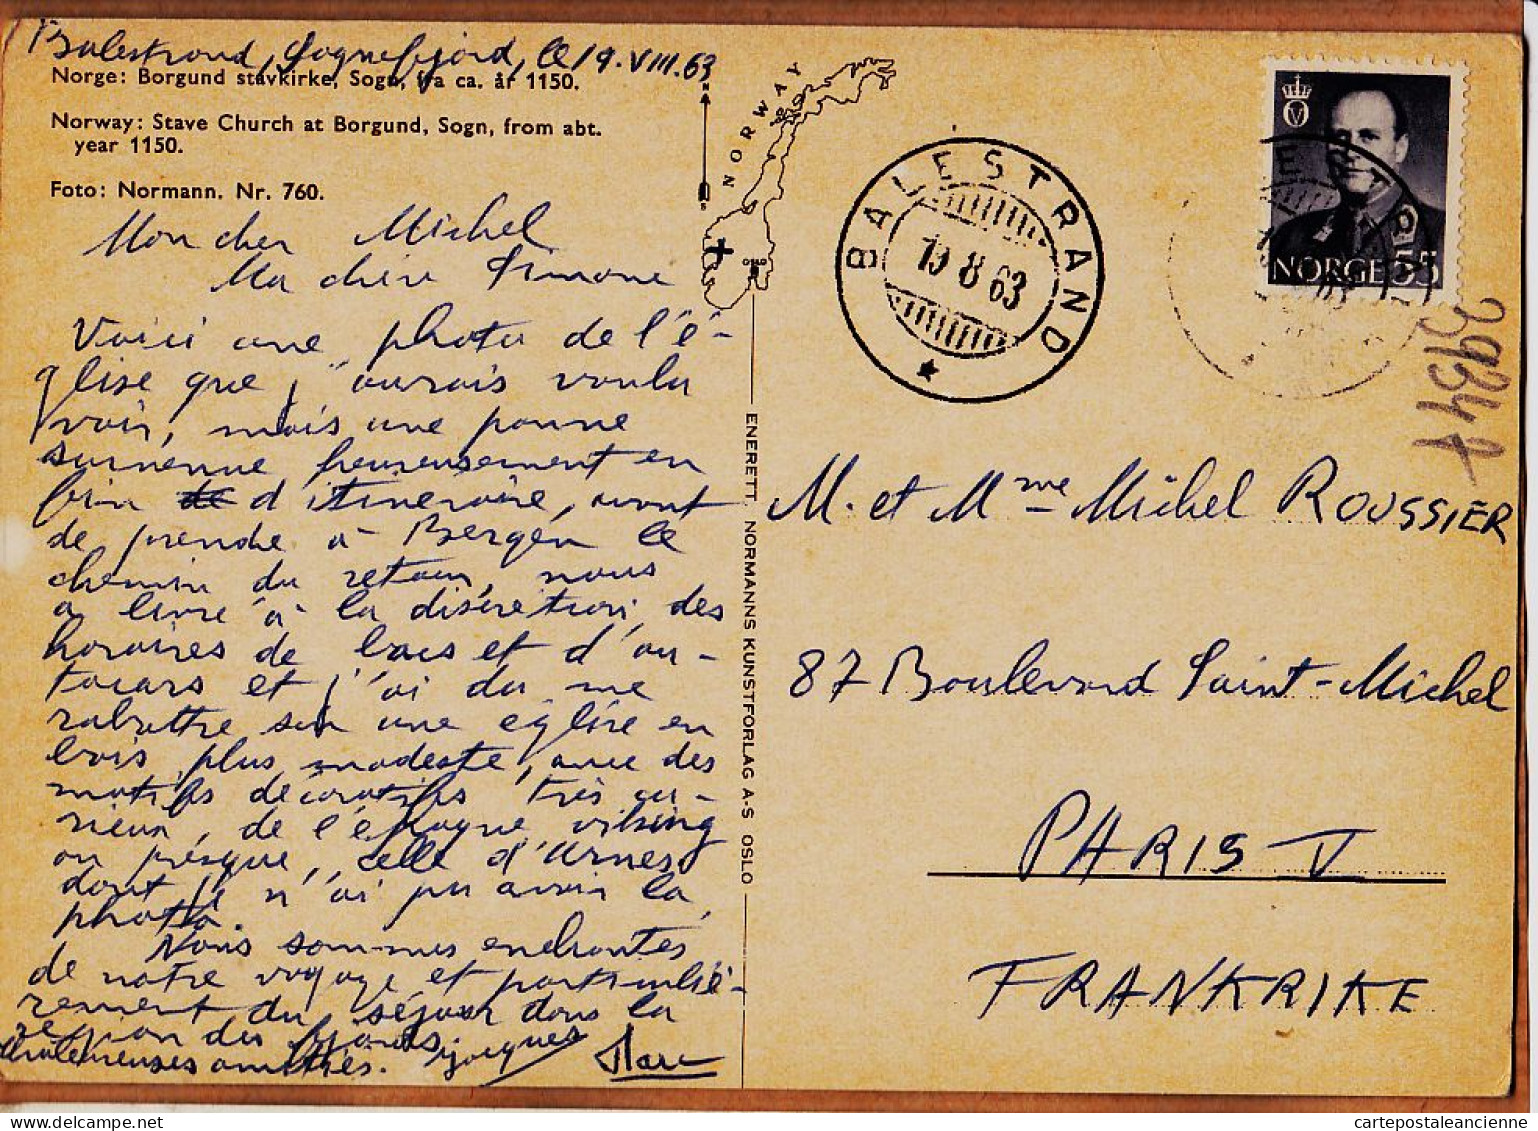 Balestrand, Sognefjord, le 19.VIII.63
Norge: Borgund stavkirke, Sogn, fra ca. år 1150.
Norway: Stave Church at Borgund, Sogn, from abt.
year 1150.
Foto: Normann. Nr. 760.
Mon cher Michel
Ma chère Simone
Voici une photo de l'é-
glise que j'aurais voulu
voir, mais une panne
survenue heureusement en
fin de d'itinéraire, avant
de prendre à Bergen le
chemin du retour, nous
a livré à la discrétion des
horaires de bacs et d'au-
tocars et j'ai du me
rabattre sur une église en
bois plus modeste, avec des
motifs décoratifs très cu-
rieux, de l'époque viking
ou presque, celle d'Urnes
dont je n'ai pu avoir la
photo.
Nous sommes enchantés
de notre voyage et particuliè-
rement du séjour dans la
région des fjords.
Affectueuses amitiés. Jacques
NORWAY
N
S
OSLO
ENERETT. NORMANNS KUNSTFORLAG A-S OSLO
BALESTRAND
19 8 63
NORGE 55
39247
M. et Mme Michel ROUSSIER
87 Boulevard Saint-Michel
PARIS V
FRANKRIKE
cartepostaleancienne.com